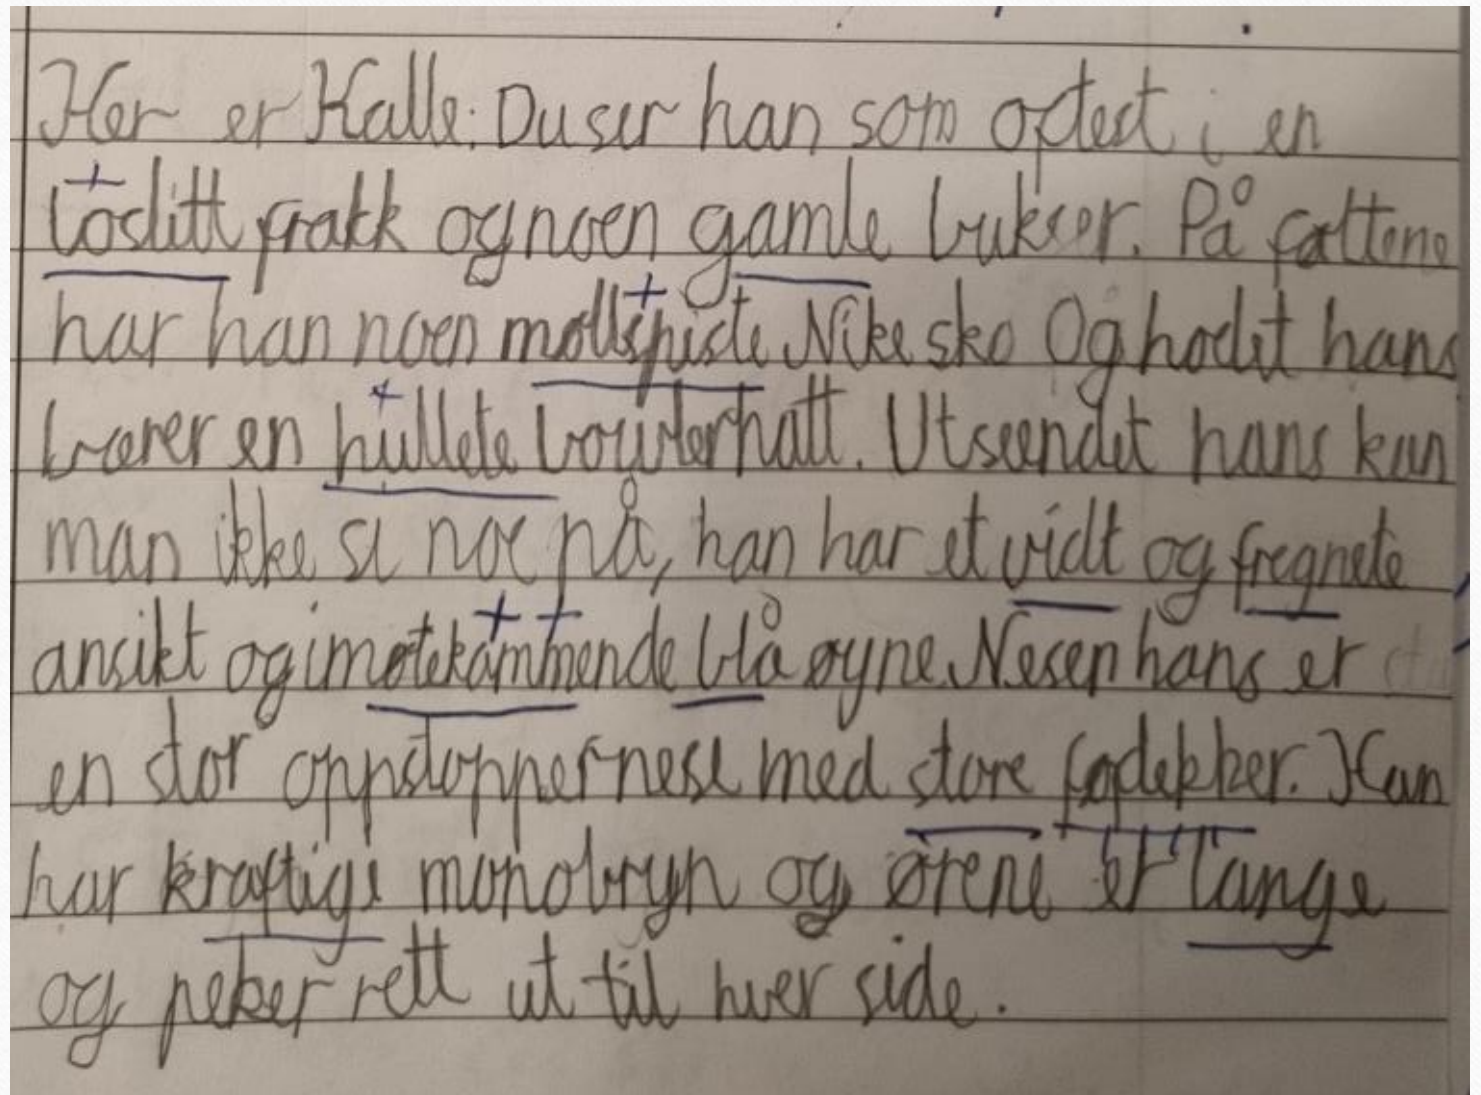 Her er Kalle. Du ser han som oftest i en
loslitt frakk og noen gamle bukser. På føttene
har han noen møllspiste Nike sko Og hodet hans
bærer en hullete bowlerhatt. Utseendet hans kan
man ikke si noe på, han har et vidt og fregnete
ansikt og imøtekåmmende blå øyne. Nesen hans er
en stor oppstoppernese med store
Han
har kraftige monobryn og ørene er lange
og peker rett ut til hver side.